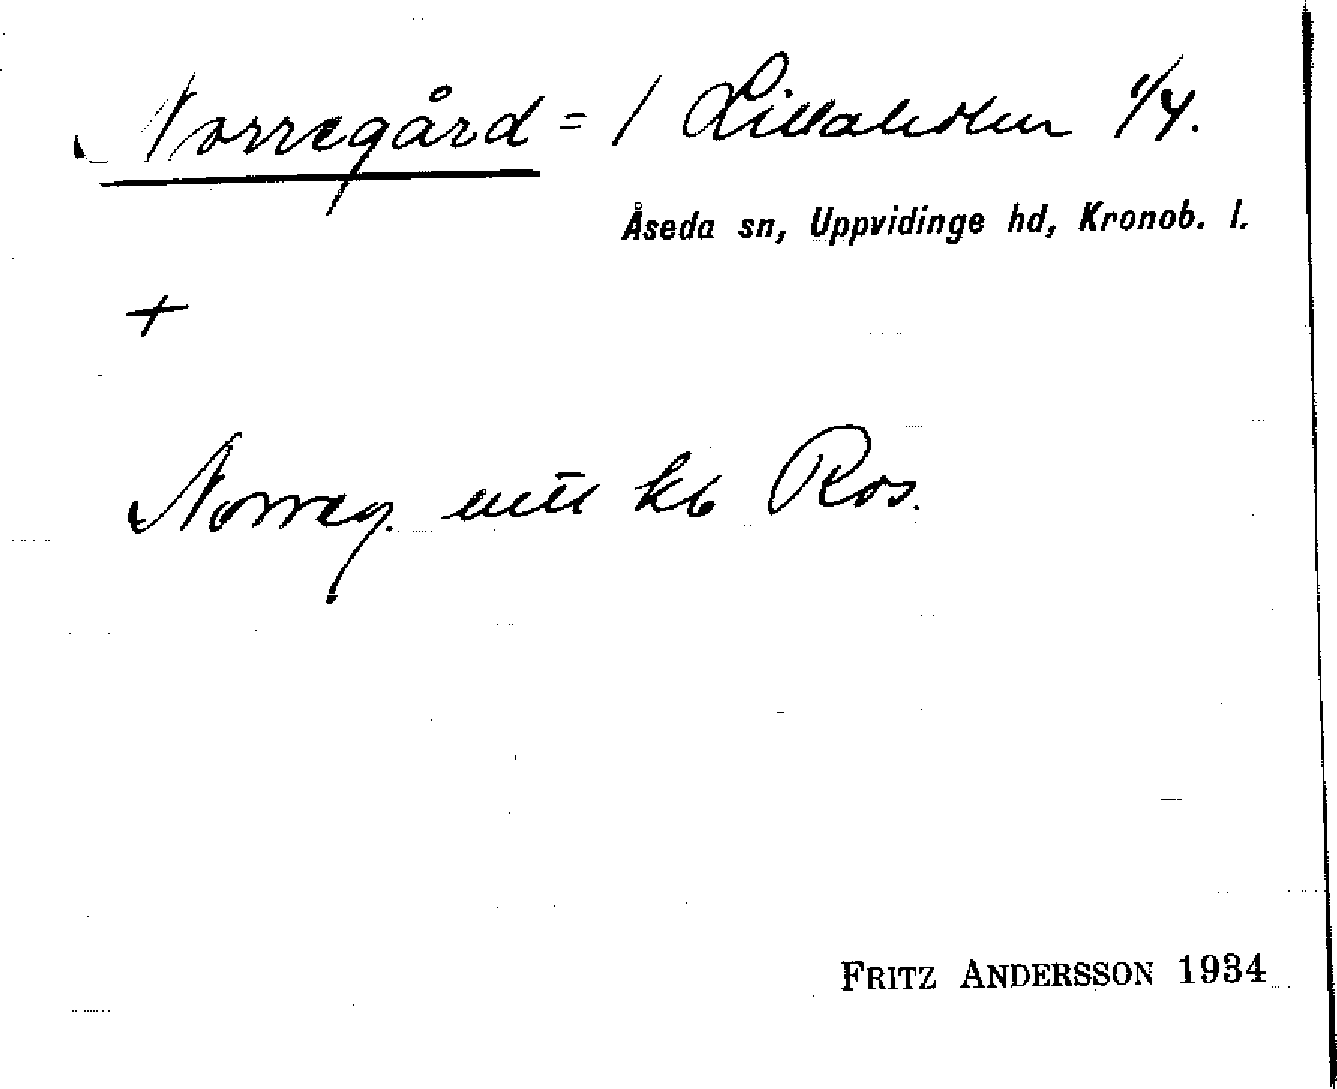 Norregård = / Lillaholm 1/4.
Åseda sn, Uppvidinge hd, Kronob. l.
+
Norreg. utt kb Ros.
FRITZ ANDERSSON 1934